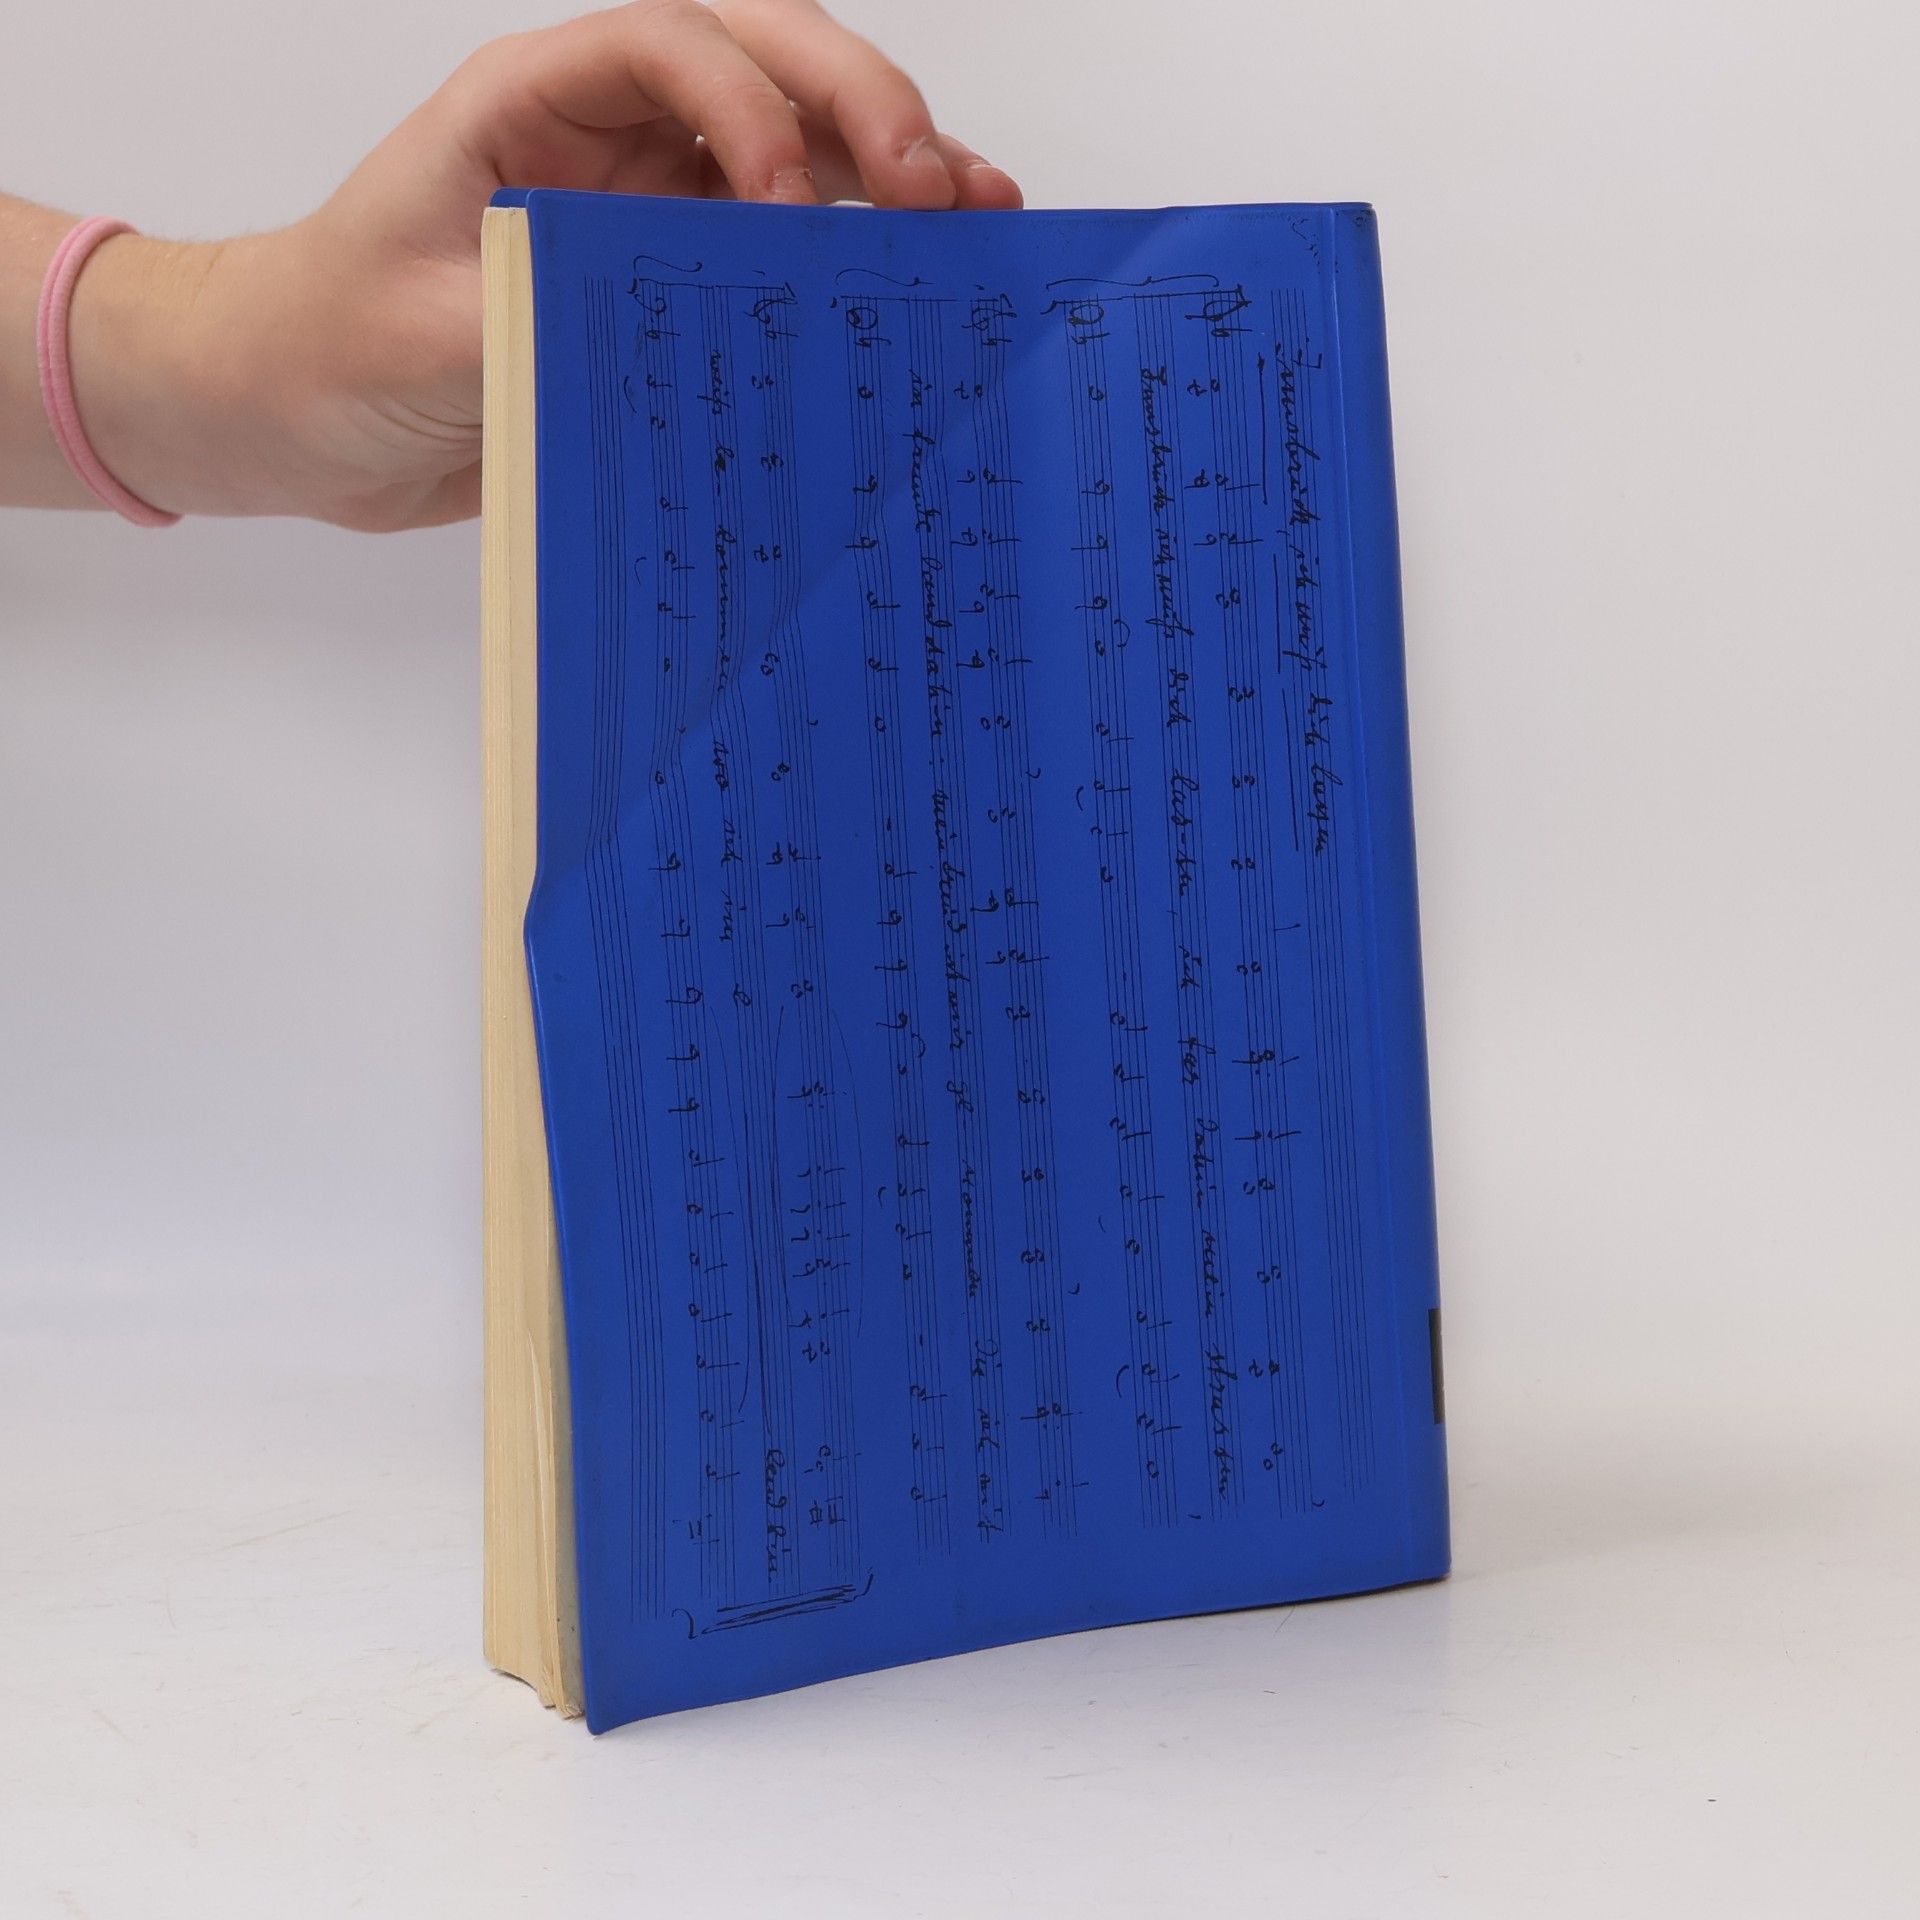 Innsbruck, ich muß dich lassen
Innsbruck ich muß dich las-sen, ich far dahin mein strassen
in fremde land dahin. mein freud ist mir ge- nommen die ich nit
weiß be- kommen wo ich im e lend bin